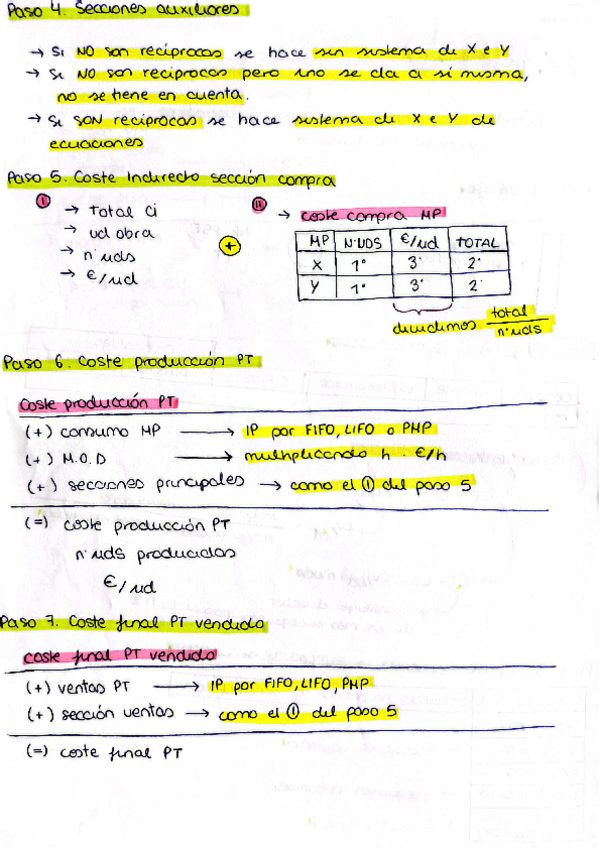 Paso 4. Secciones auxiliares
→ Si NO son reciprocas se hace sin sistema de X e Y
→ Si NO son reciprocas pero uno se da a si misma,
no se tiene en cuenta.
→ Si SON reciprocas se hace sistema de X e Y de
ecuaciones
Paso 5. Coste Indirecto sección compra
I
→ Total Ci
→ ud obra
→ nº uds
→ €/ud
+
II → coste compra MP
MP Nº UDS €/ud TOTAL
X 1º 3º 2º
Y 1º 3º 2º
dividimos total
nº uds
Paso 6. Coste producción PT
Coste producción PT
(+) consumo MP → IP por FIFO, LIFO o PMP
(+) M.O.D → multiplicando h · €/h
(+) secciones principales → como el ① del paso 5
(=) coste producción PT
nº uds producidas
€/ud
Paso 7. Coste final PT vendido
coste final PT vendido
(+) ventas PT → IP por FIFO, LIFO, PMP
(+) sección ventas → como el ① del paso 5
(=) coste final PT